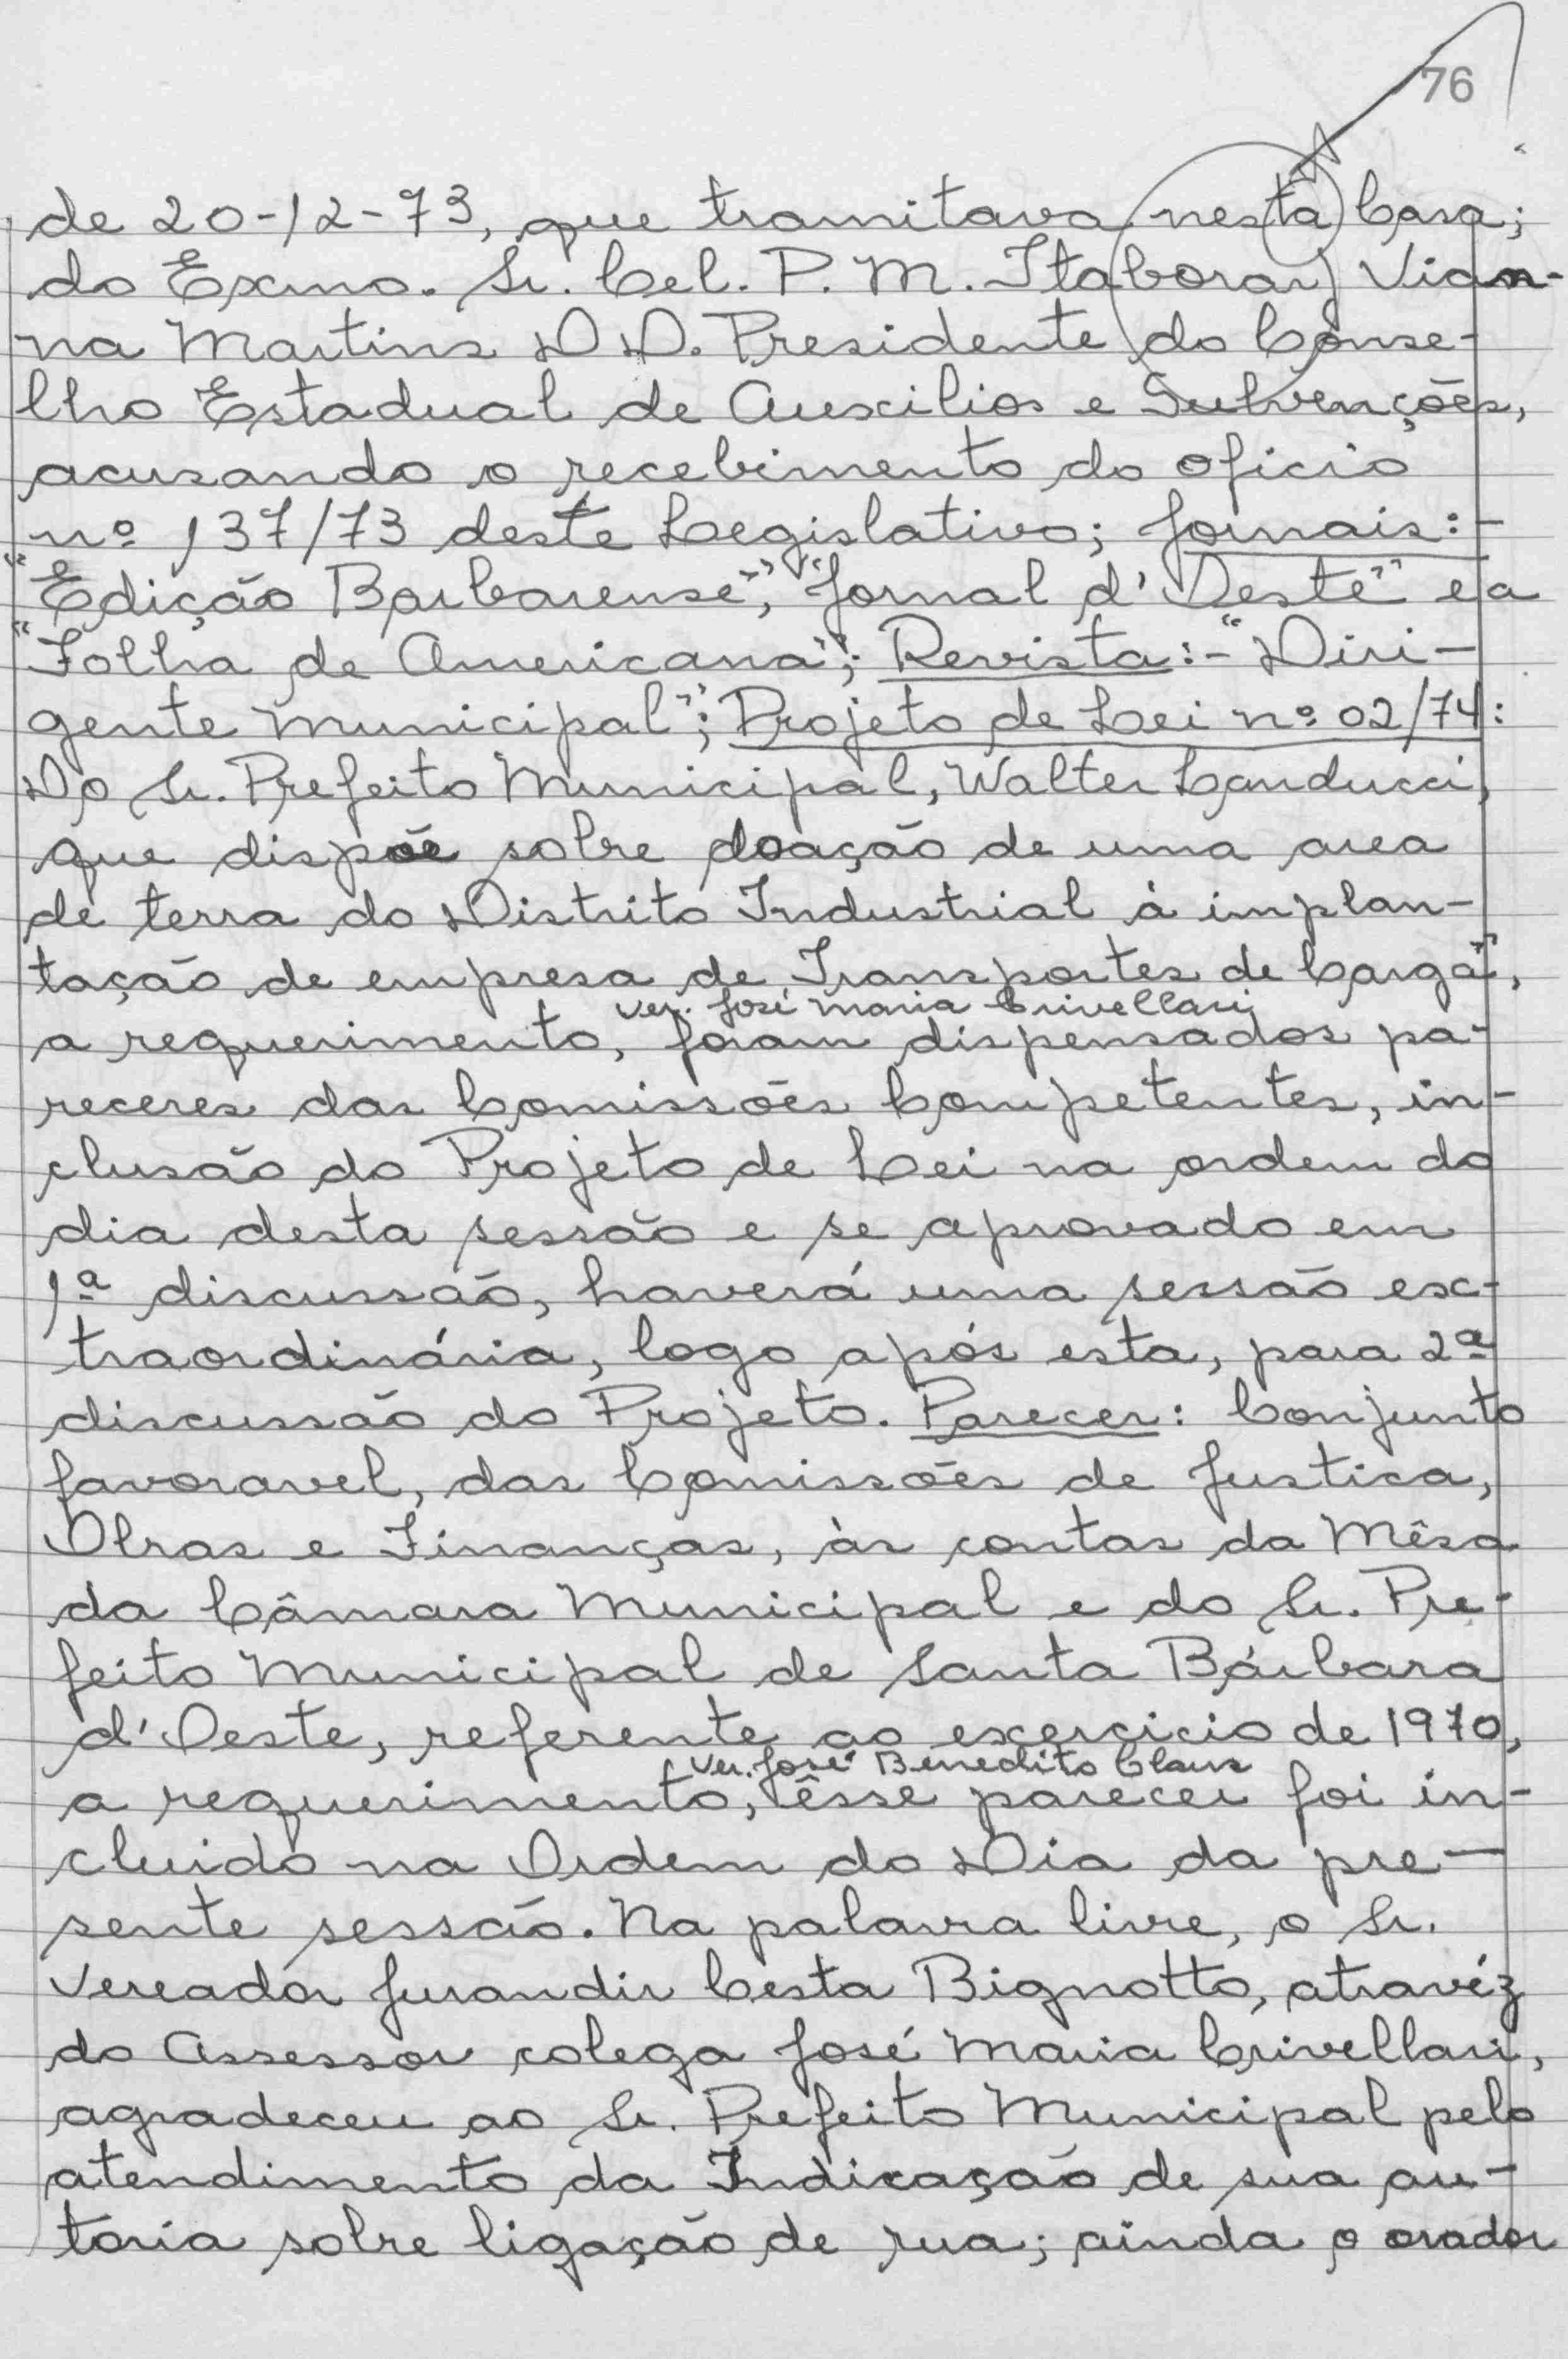 76
de 20-12-73, que tramitava nesta Casa;
do Exmo. Sr. Cel. P. M. Itaboraí Vian-
na Martins DD. Presidente do Conse-
lho Estadual de Auxilios e Subvenções,
acusando o recebimento do oficio
nº 137/73 deste Legislativo; Jornais:-
"Edição Barbarense", "Jornal d'Oeste" e a
"Folha de Americana"; Revista:- "Diri-
gente Municipal"; Projeto de Lei nº 02/74:
Do Sr. Prefeito Municipal, Walter Landucci,
que dispõe sobre doação de uma area
de terra do Distrito Industrial à implan-
tação de empresa de Transportes de Carga",
ver. José Maria Crivellari
a requerimento, foram dispensados pa-
receres das Comissões Competentes, in-
clusão do Projeto de Lei na ordem do
dia desta sessão e se aprovado em
1ª discussão, haverá uma sessão ex-
traordinária, logo após esta, para 2ª
discussão do Projeto. Parecer: Conjunto
favoravel, das Comissões de Justica,
Obras e Finanças, às contas da Mêsa
da Câmara Municipal e do Sr. Pre-
feito Municipal de Santa Bárbara
d'Oeste, referente ao exercicio de 1970,
ver. José Benedito Claus
a requerimento, êsse parecer foi in-
cluido na Ordem do Dia da pre-
sente sessão. Na palavra livre, o Sr.
Vereador Jurandir Cesta Bignotto, atravéz
do Assessor colega José Maria Crivellari,
agradeceu ao Sr. Prefeito Municipal pelo
atendimento da Indicação de sua au-
toria sobre ligação de rua; ainda o orador